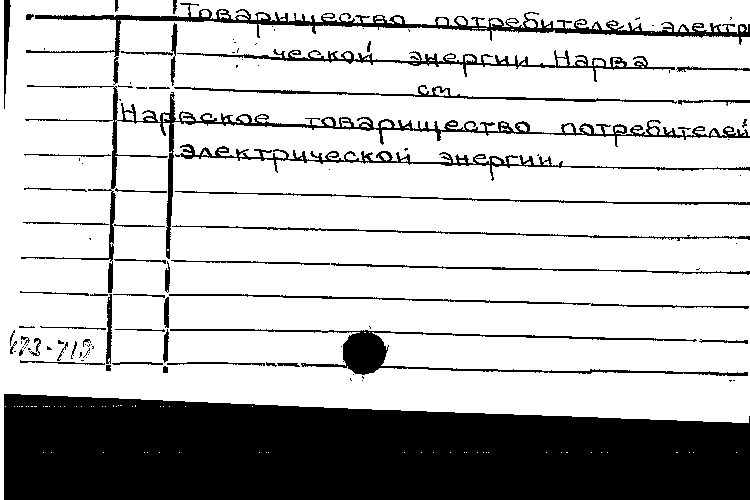 Товарищество потребителей электр
ческой энергии. Нарва
см.
Нарвское товарищество потребителей
электрической энергии.